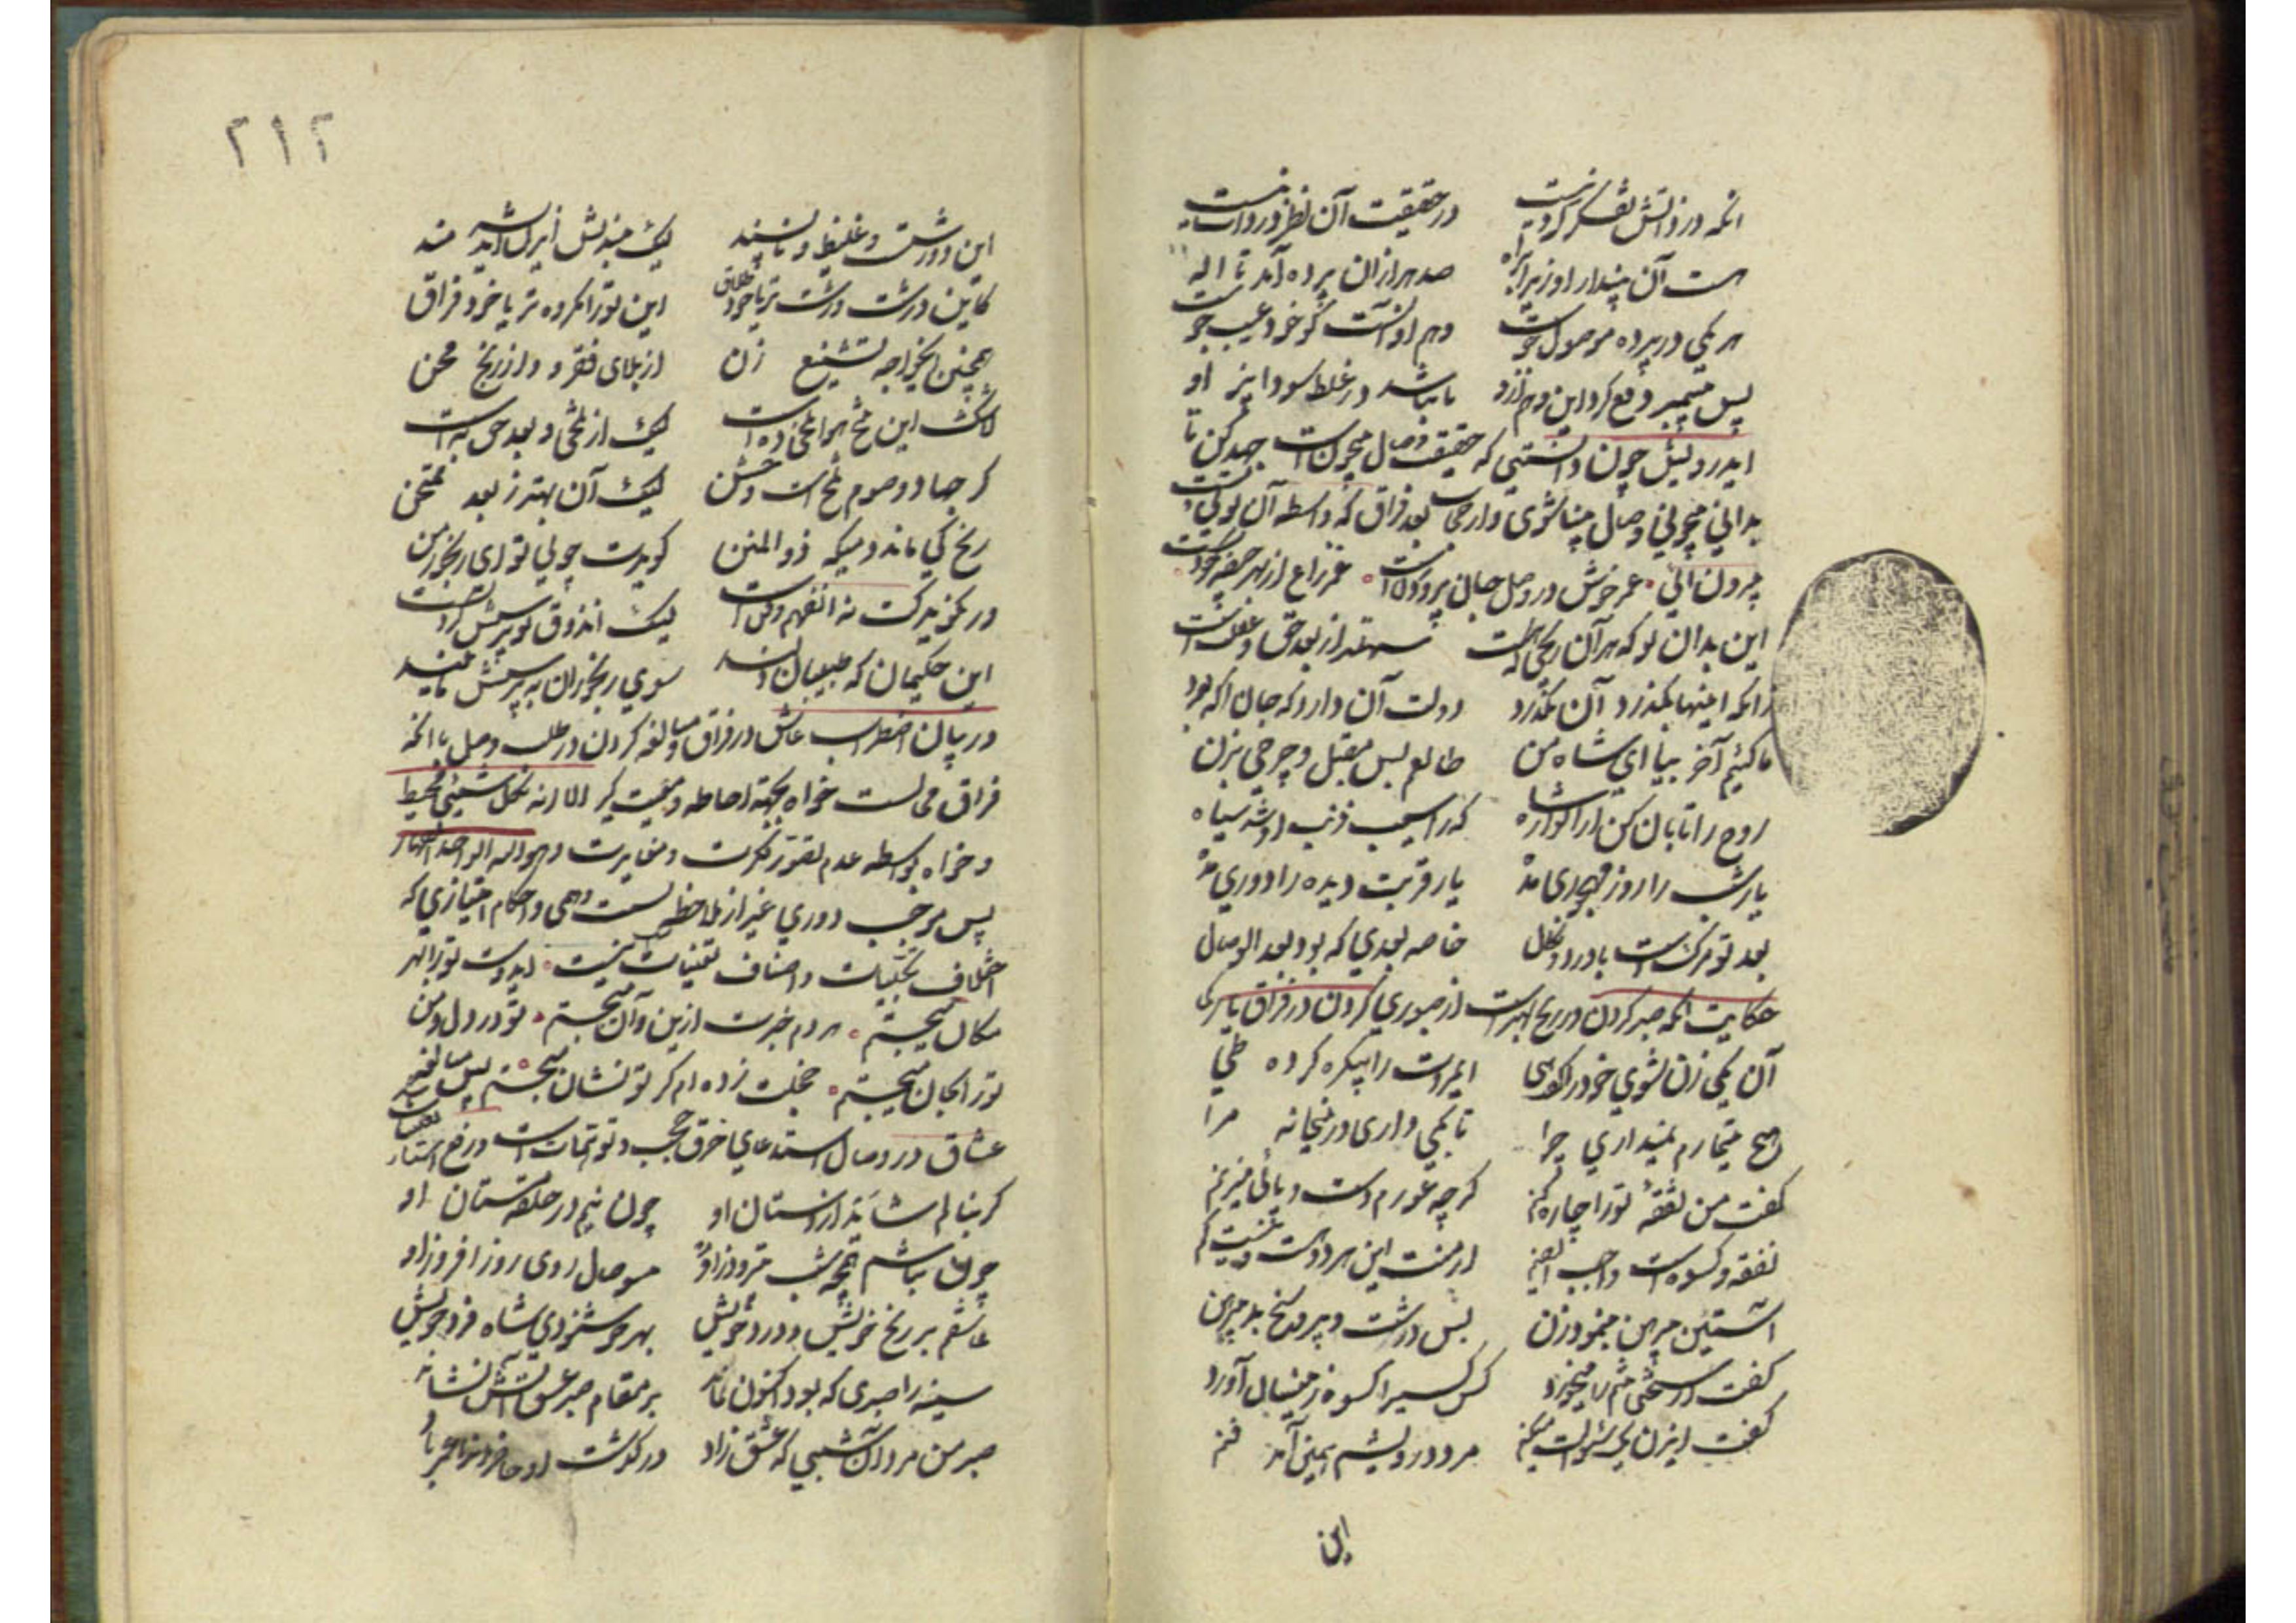 انکه در ذاتش تفکر کردنیست در حقیقت آن نظر در ذات نیست
هست آن پندار او زیرا براه صد هزاران پرده آمد تا اله
هر یکی در پرده موصول خوست وهم او آنست کو خود عیب هوست
پس پیمبر دفع کرد این وهم ازو تا نباشد در غلط سودا پز او
ایدرویش چون دانستی که حقیقت وصال بیچونست جهد کن تا
بدانی بیچونی وصال بینا شوی و از حجاب بعد فراق که واسطه آن
بیرون آئی عمر خوش در وصل جان پروردنست عمر زاغ از بهر
این بدان تو که هر آن رنجی که هست سهلتر از بعد حق و غفلتست
زانکه اینها بگذرد آن نگذرد دولت آن دارد که جان آگه برد
ما کئیم آخر بیا ای شاه من طالعم بس مقبل و چرخی بزن
روح را تابان کن از انوار ماه که ز آسیب ذنب او شد سیاه
یار شب را روز مهجوری مده یار قربت دیده را دوری مده
بعد تو مرگست با درد و نکال خاصه بعدی که بود بعد الوصال
حکایت آنکه صبر کردن در رنج بهترست از صبوری کردن در فراق یار
آن یکی زن شوی خود را گو هی ای مروت را بیکره کرده طی
هیچ تیمارم نمیداری چرا تا بکی داری درینخانه مرا
گفت من نفقه تورا چاره کنم گرچه عورم دست و پائی میزنم
نفقه و کسوه است واجب ای صنم از منت این هر دو هست و نیست کم
آستین پیرهن بنمود زن بس درشت و پر وسخ بد پیرهن
گفت از سختی تنم را میخورد کس کسی را کسوه زینسان آورد
گفت ای زن یک سئوالت میکنم مرد درویشم همین آمد فنم
این
۲۱۲
این درشتست و غلیظ و ناپسند لیک بندیش ای زن اندیشه مند
کاین درشت و زشت تر یا خود طلاق این تورا مکروه تر یا خود فراق
همچنین ایخواجه تشنیع زن از بلای فقر و از رنج و محن
لاشک این تلخ هوا تلخی ده است لیک از تلخی بعد حق به است
گر جهاد و صوم تلخ است و خشن لیک آن بهتر ز بعد ممتحن
رنج کی ماند دمیکه ذو المنن گویدت چونی تو ای رنجور من
ور نگویدکت نه آن فهم و فن است لیک آن ذوق تو پرسش کردنست
این حکیمان که طبیبان دلند سوی رنجوران به پرسش مایلند
در بیان اضطراب عاشق در فراق و مبالغه کردن در طلب وصل با آنکه
فراق محالست خواه بجهته احاطه و معیت که الا انه بکل شیئی محیط
و خواه بواسطه عدم تصور کثرت و مغایرت و هو الله الواحد القهار
پس موجب دوری غیر از ملاحظه نسب وهمی و احکام امتیازی که
اختلاف تجلیات و اصناف تعینات نیست ایدوست تورا بهر
مکان میجستم هر دم خبرت ازین و آن میجستم تو در دل و من
تورا بجان میجستم خجلت زده ام کز تو نشان میجستم پس مبالغه
عشاق در وصال استدعای خرق حجب و توهماتست و رفع استار
گر بنالم شاید از دستان او چون نیم در حلقه مستان او
چون نباشم همچو شب بی روز او بیوصال روی روز افروز او
عاشقم بر رنج خویش و درد خویش بهر خوشنودی شاه فرد خویش
سینه را صبری که بود اکنون نماند بر مقام صبر عشق آتش نشاند
صبر من مرد آن شبی که عشق زاد درگذشت او حاضران را عمر باد